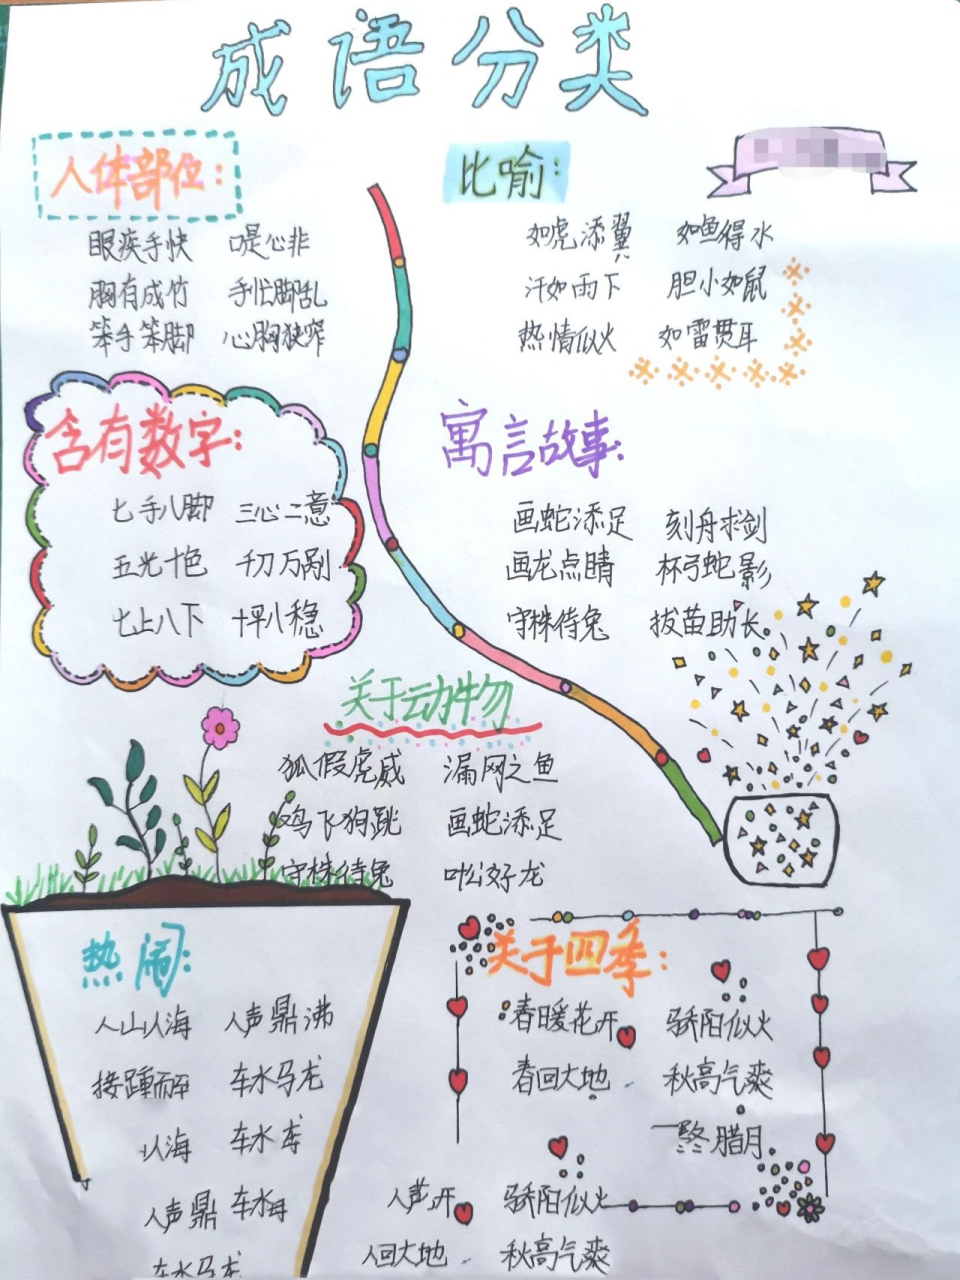 成语分类
人体部位：
眼疾手快 口是心非
胸有成竹 手忙脚乱
笨手笨脚 心胸狭窄
比喻：
如虎添翼 如鱼得水
汗如雨下 胆小如鼠
热情似火 如雷贯耳
含有数字：
七手八脚 三心二意
五光十色 千刀万剐
七上八下 十平八稳
寓言故事：
画蛇添足 刻舟求剑
画龙点睛 杯弓蛇影
守株待兔 拔苗助长
关于动物
狐假虎威 漏网之鱼
鸡飞狗跳 画蛇添足
守株待兔 叶公好龙
热闹：
人山人海 人声鼎沸
接踵而 车水马龙
人海 车水
人声鼎 车水
车水马龙
关于四季：
春暖花开 骄阳似火
春回大地 秋高气爽
腊月
人声开 骄阳似火
人回大地 秋高气爽